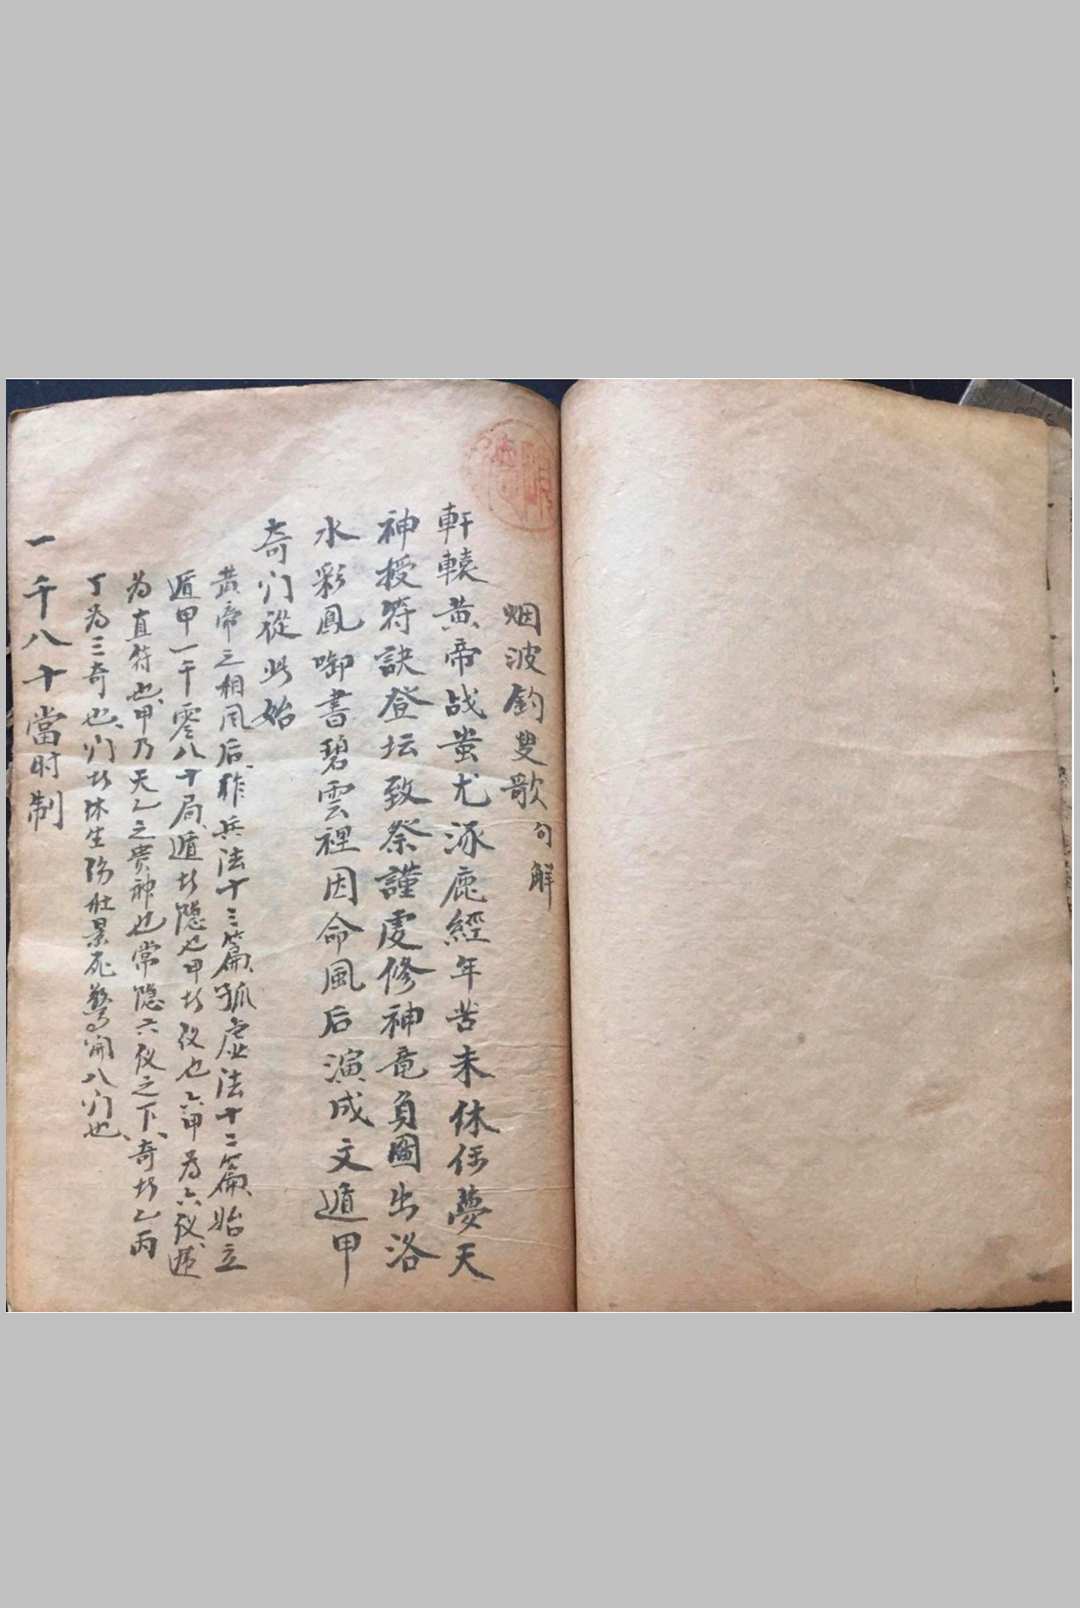 烟波釣叟歌句解
軒轅黄帝战蚩尤涿鹿經年苦未休偶夢天
神授符訣登坛致祭謹虔修神竜負圖出洛
水彩鳳啣書碧雲裡因命風后演成文遁甲
奇们從此始
黄帝之相风后作兵法十三篇孤虚法十二篇始立
遁甲一千零八十局遁者隐也甲者仪也六甲為六仪
为直符也甲乃天乙之贵神也常隐六仪之下奇者乙丙
丁為三奇也们者休生伤杜景死驚開八们也
一千八十當时制